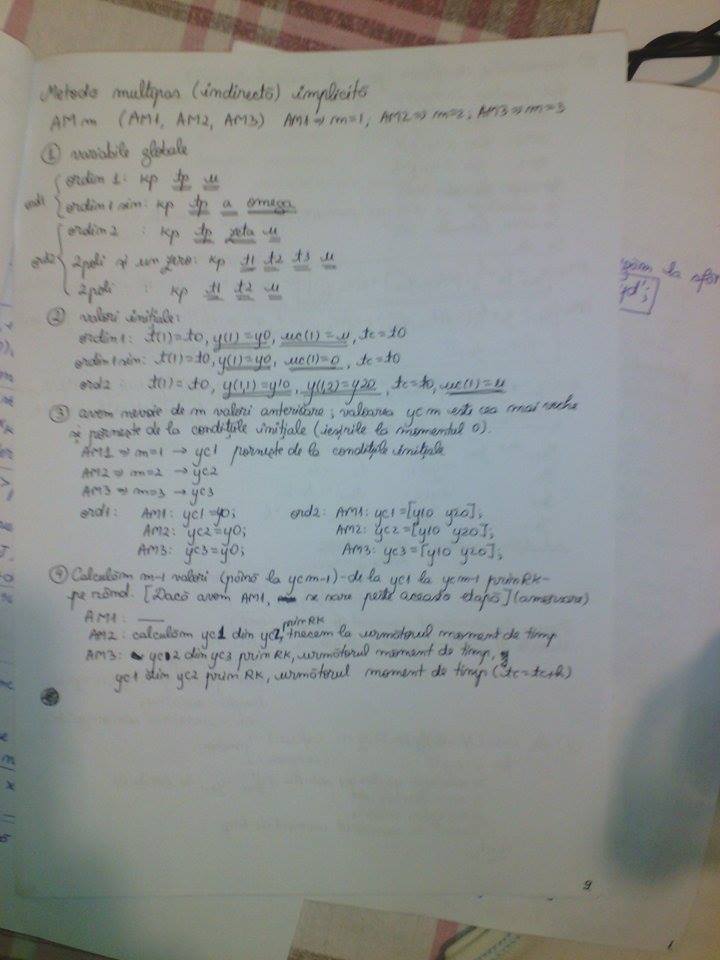 Metoda multipas (indirectă) implicită
AMm (AM1, AM2, AM3) AM1 => m=1; AM2 => m=2; AM3 => m=3
① variabile globale
ord1 { ordin 1: kp tp u
ordin 1 sin: kp tp a omega
ord2 { ordin 2 : kp tp zeta u
2poli și un zero: kp t1 t2 t3 u
2poli : kp t1 t2 u
② valori inițiale:
ordin1: t(1)=t0, y(1)=y0, uc(1)=u, tc=t0
ordin 1 sin: t(1)=t0, y(1)=y0, uc(1)=0, tc=t0
ord2 : t(1)=t0, y(1,1)=y10, y(1,2)=y20, tc=t0, uc(1)=u
③ avem nevoie de m valori anterioare; valoarea ycm este cea mai veche
și pornește de la condițiile inițiale (ieșirile la momentul 0).
AM1 => m=1 → yc1 pornește de la condițiile inițiale
AM2 => m=2 → yc2
AM3 => m=3 → yc3
ord1: AM1: yc1=y0; ord2: AM1: yc1=[y10 y20];
AM2: yc2=y0; AM2: yc2=[y10 y20];
AM3: yc3=y0; AM3: yc3=[y10 y20];
④ Calculăm m-1 valori (până la ycm-1) - de la yc1 la ycm-1 prin RK-
pe rând. [Dacă avem AM1, se sare peste această etapă]
AM1: —
AM2: calculăm yc1 din yc2 prin RK, trecem la următorul moment de timp
AM3: yc2 din yc3 prin RK, următorul moment de timp,
yc1 din yc2 prin RK, următorul moment de timp (tc=tc+h)
9
la sfâr
yd';
1